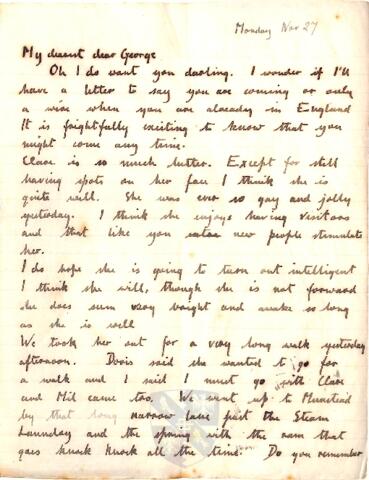 Monday Nov 27
My dearest dear George
Oh I do want you darling. I wonder if I'll
have a letter to say you are coming or only
a wire when you are already in England
It is frightfully exciting to know that you
might come any time.
Clare is so much better. Except for still
having spots on her face I think she is
quite well. She was ever so gay and jolly
yesterday. I think she enjoys having visitors
and that like you new people stimulate
her.
I do hope she is going to turn out intelligent
I think she will, though she is not forward
she does seem very bright and awake so long
as she is well
We took her out for a very long walk yesterday
afternoon. Doris said she wanted to go for
a walk and I said I must go with Clare
and Mil came too. We went up to Munstead
by that long narrow lane past the Steam
Laundry and the spring with the ram that
goes knock knock all the time. Do you remember